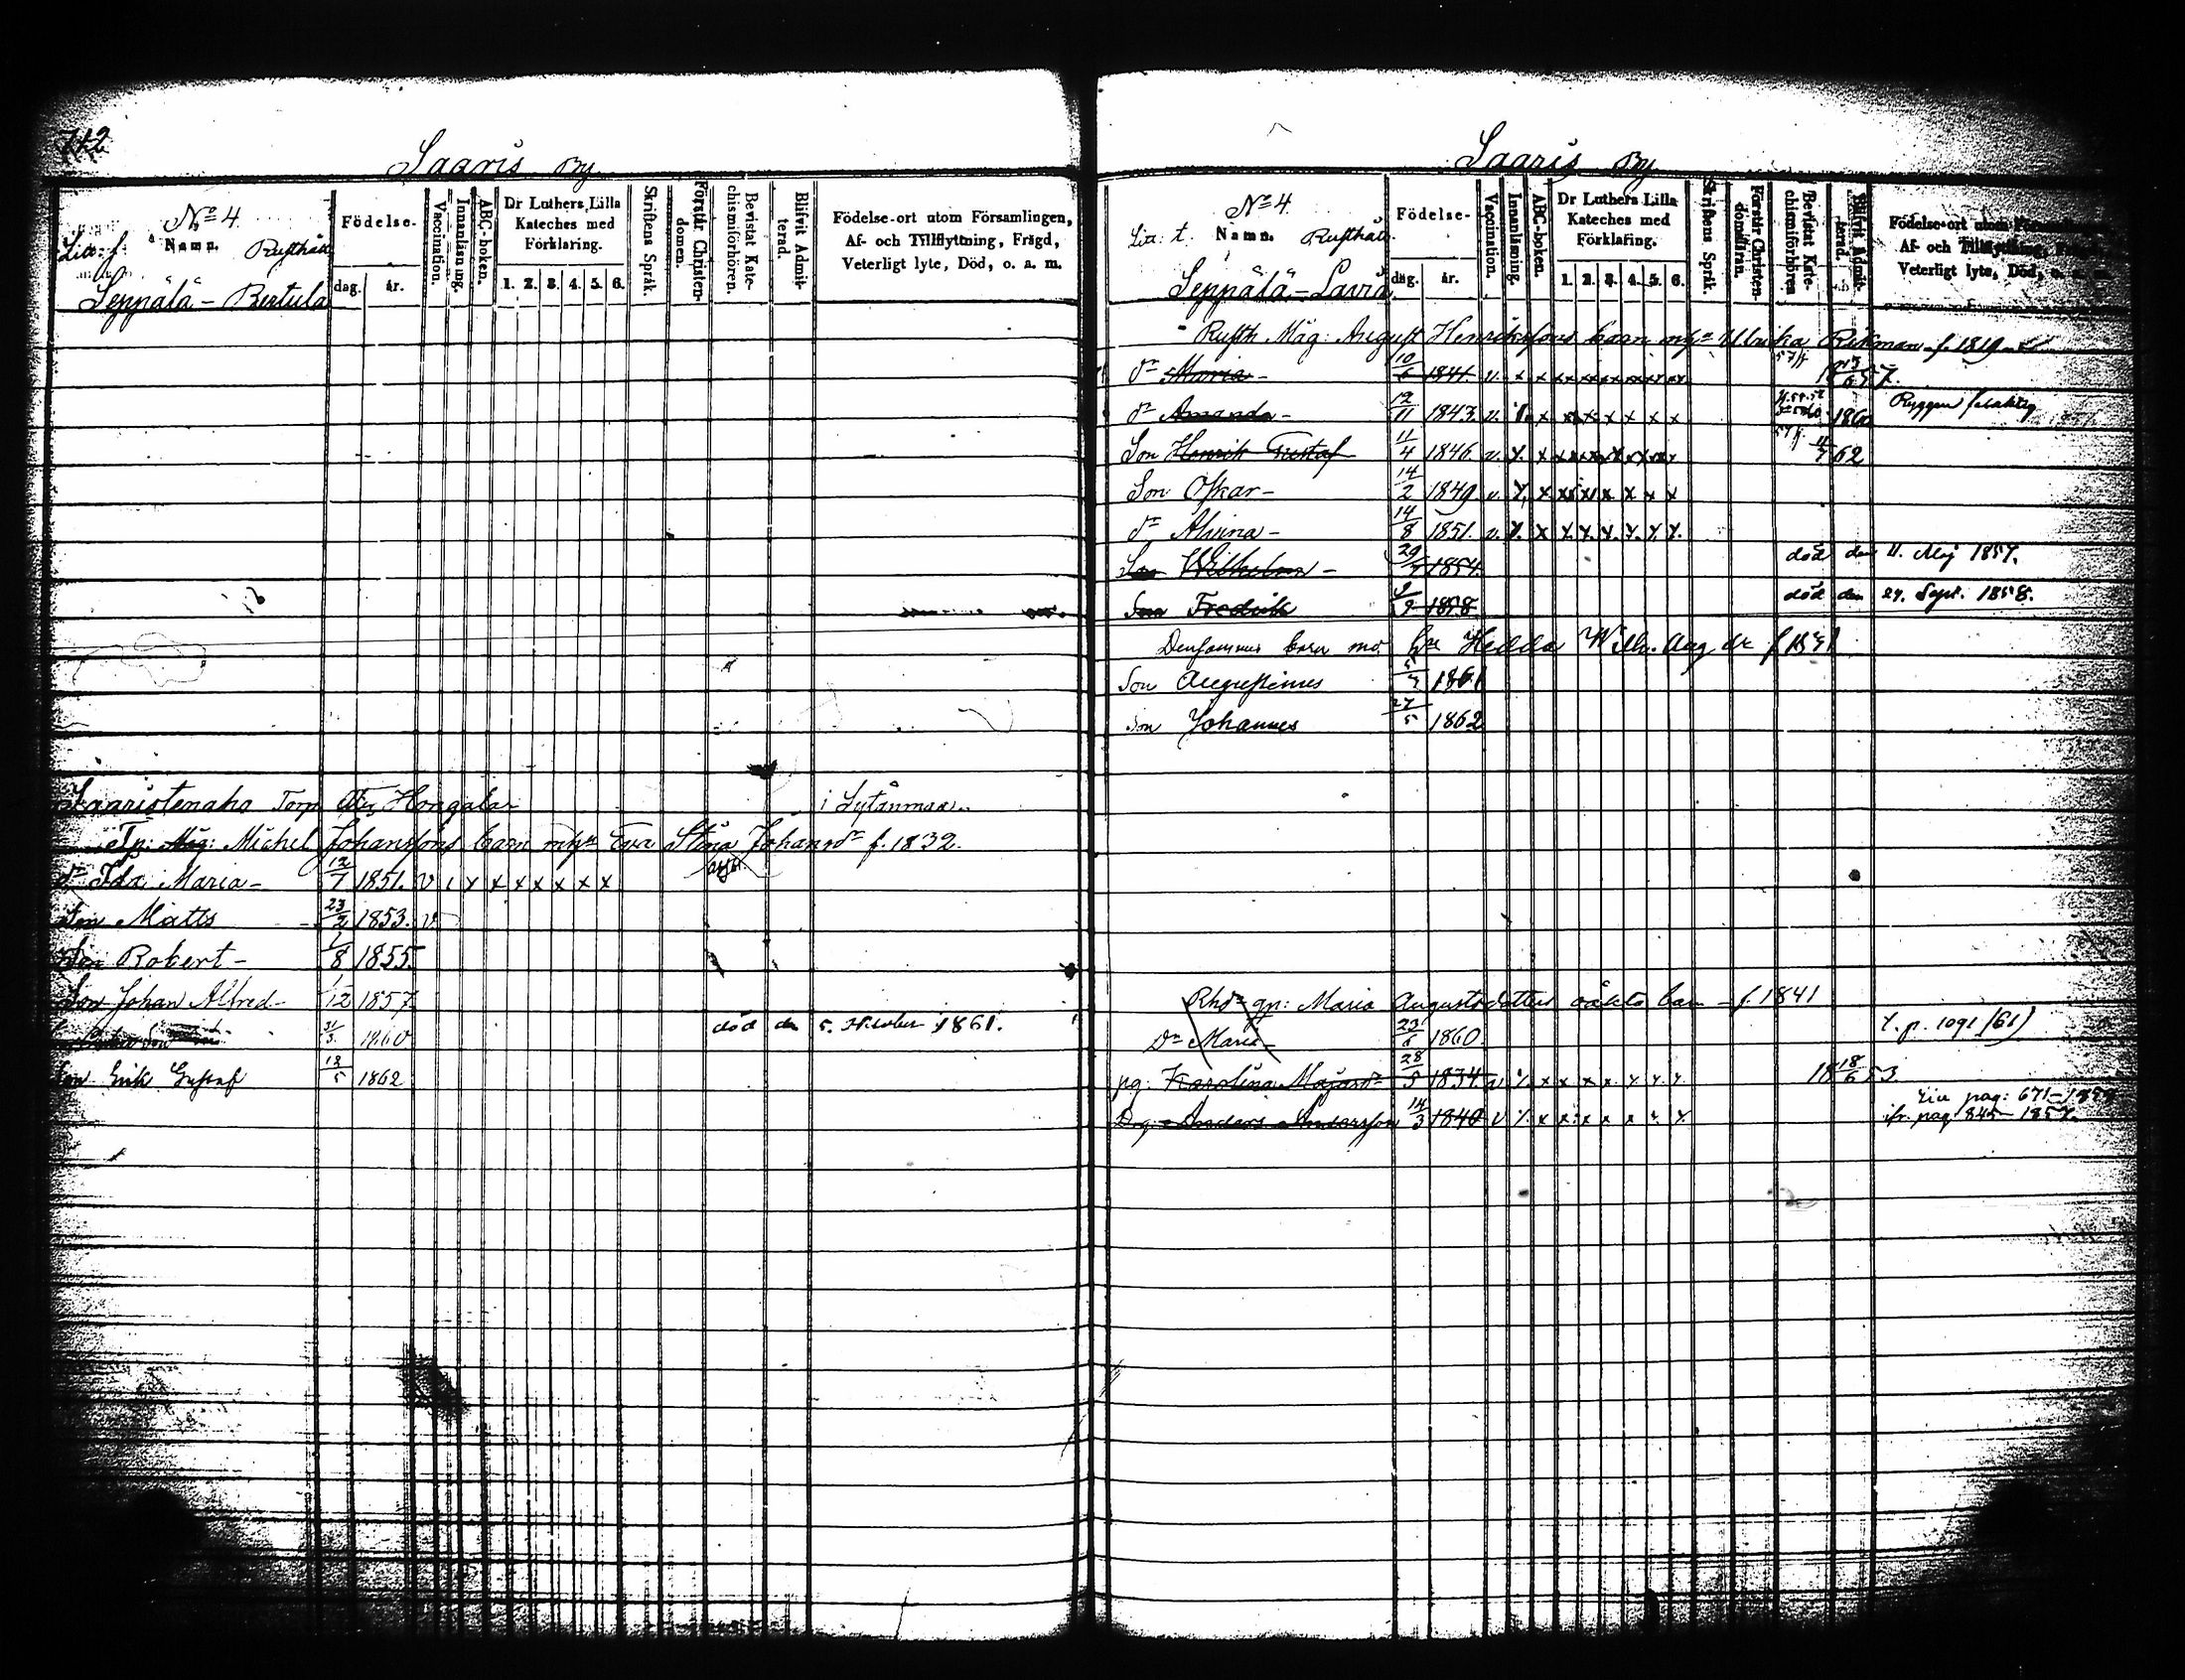 742
Saaris By
No 4
Litt: f. Namn. Rusthåll
Seppälä - Bertula
Födelse-
dag. år.
Vaccination.
Innanläsning.
ABC-boken.
Dr Luthers Lilla Kateches med Förklaring.
1. 2. 3. 4. 5. 6.
Skriftens Språk.
Förstår Christendomen.
Bevistat Katechismiförhören.
Blifvit Admitterad.
Födelse-ort utom Församlingen,
Af- och Tillflyttning, Frägd,
Veterligt lyte, Död, o. a. m.
Saaristenaho Torp Hongalar i Sytänmaa
Tp: Måg: Michel Johanssons barn Eva Stina Johansdr f. 1832.
dr Ida Maria - 12/7 1851. v x x x x x x x
Son Matts 23/2 1853. v
Son Robert - 1/8 1855.
Son Johan Alfred - 1/12 1857
31/3 1860 död den 5. Oktober 1861.
Son Erik Gustaf 18/5 1862
Saaris By
No 4.
Litt: t. Namn. Rusthåll.
Seppälä - Lavra
Födelse-
dag. år.
Vaccination.
Innanläsning.
ABC-boken.
Dr Luthers Lilla Kateches med Förklaring.
1. 2. 3. 4. 5. 6.
Skriftens Språk.
Förstår Christendomsläran.
Bevistat Katechismiförhören
Blifvit Admitterad.
Födelse-ort utom Församlingen
Af- och Tillflyttning,
Veterligt lyte, Död, o. a. m.
Rusth Måg: August Henrikssons barn Ulrika Rikman f. 1819
dr Maria - 10/6 1841. v. x x x x x x x x 57
dr Amanda - 12/11 1843. v. x x x x x x x 1860 Ryggen felaktig
Son Henrik Gustaf 11/4 1846. v. x x x x x x x x 62
Son Oskar - 14/2 1849 v. x x x x x x x x
dr Alvina - 14/8 1851. v. x x x x x x x x
Son Wilhelm - 29/ 1854. död den 11. Maj 1857.
Son Fredrik 9/9 1858 död den 27. Sept. 1858.
Densammes barn Hedda Wilh. Aug dr f 1841
Son Augustinus 1861
Son Johannes 27/5 1862
Rhd gp: Maria Augustsdotters oäkta barn - f. 1841
Dr Maria - 23/5 1860. p. 1091 (61)
pg: Karolina Majasdr 28/5 1834. v. x x x x x x x x 18 18/6 53.
Drg. Anders Andersson 14/3 1840 v x x x x x x x pag: 671-
pag 845 1857.